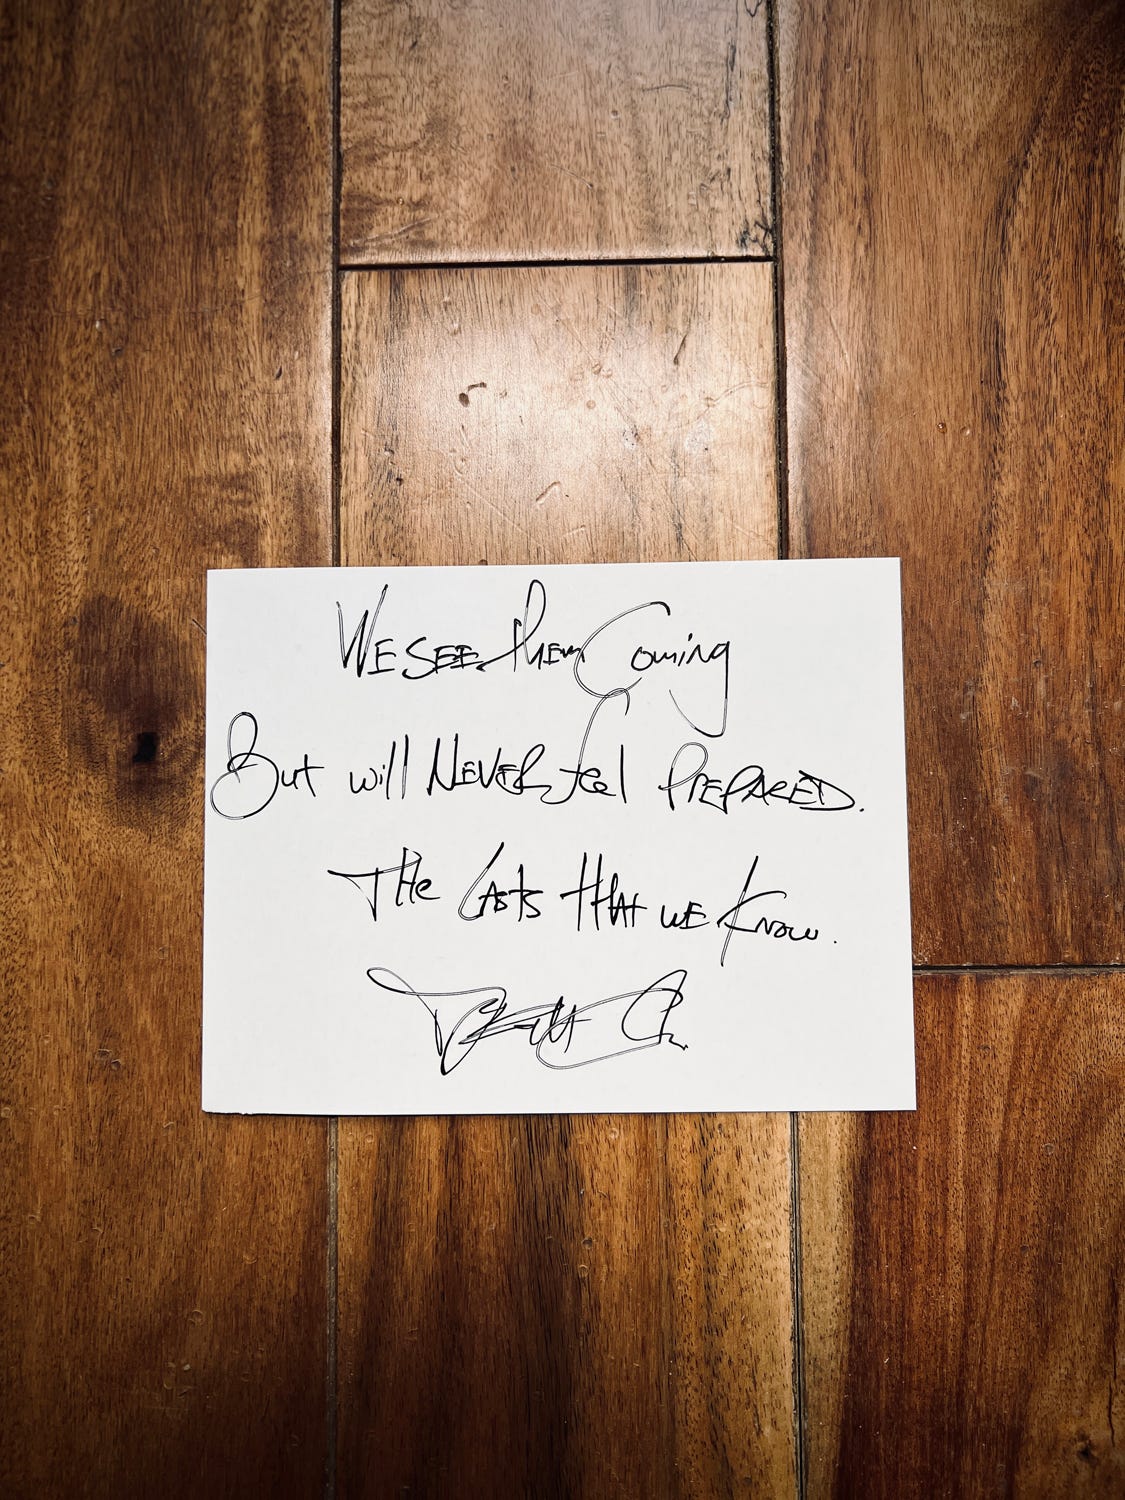 We see them Coming
But will Never feel PREPARED.
The Lasts that we know.